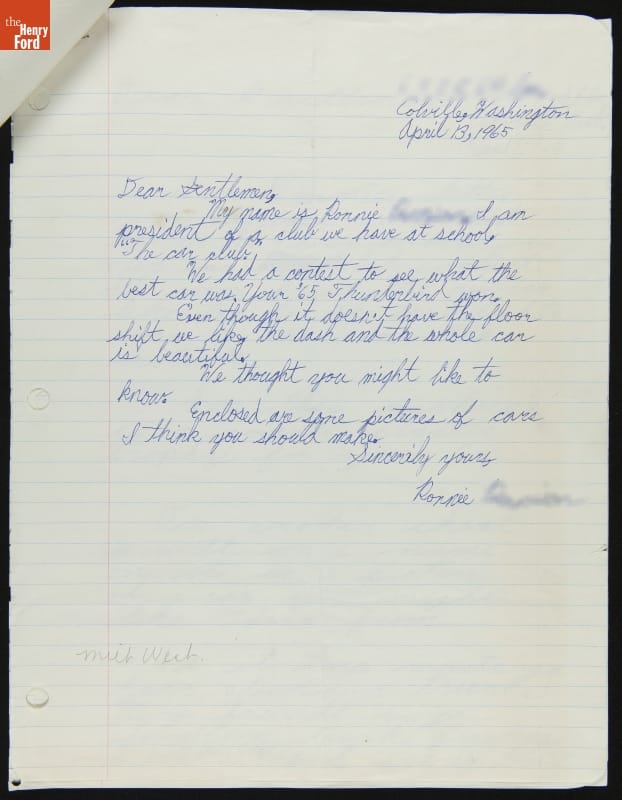 the
Henry
Ford
Colville, Washington
April 13, 1965
Dear Gentlemen,
My name is Ronnie I am
president of a club we have at school,
"The car club.
We had a contest to see what the
best car was. Your '65 Thunderbird won.
Even though it doesn't have the floor
shift we like the dash and the whole car
is beautiful.
We thought you might like to
know.
Enclosed are some pictures of cars
I think you should make.
Sincerily yours,
Ronnie